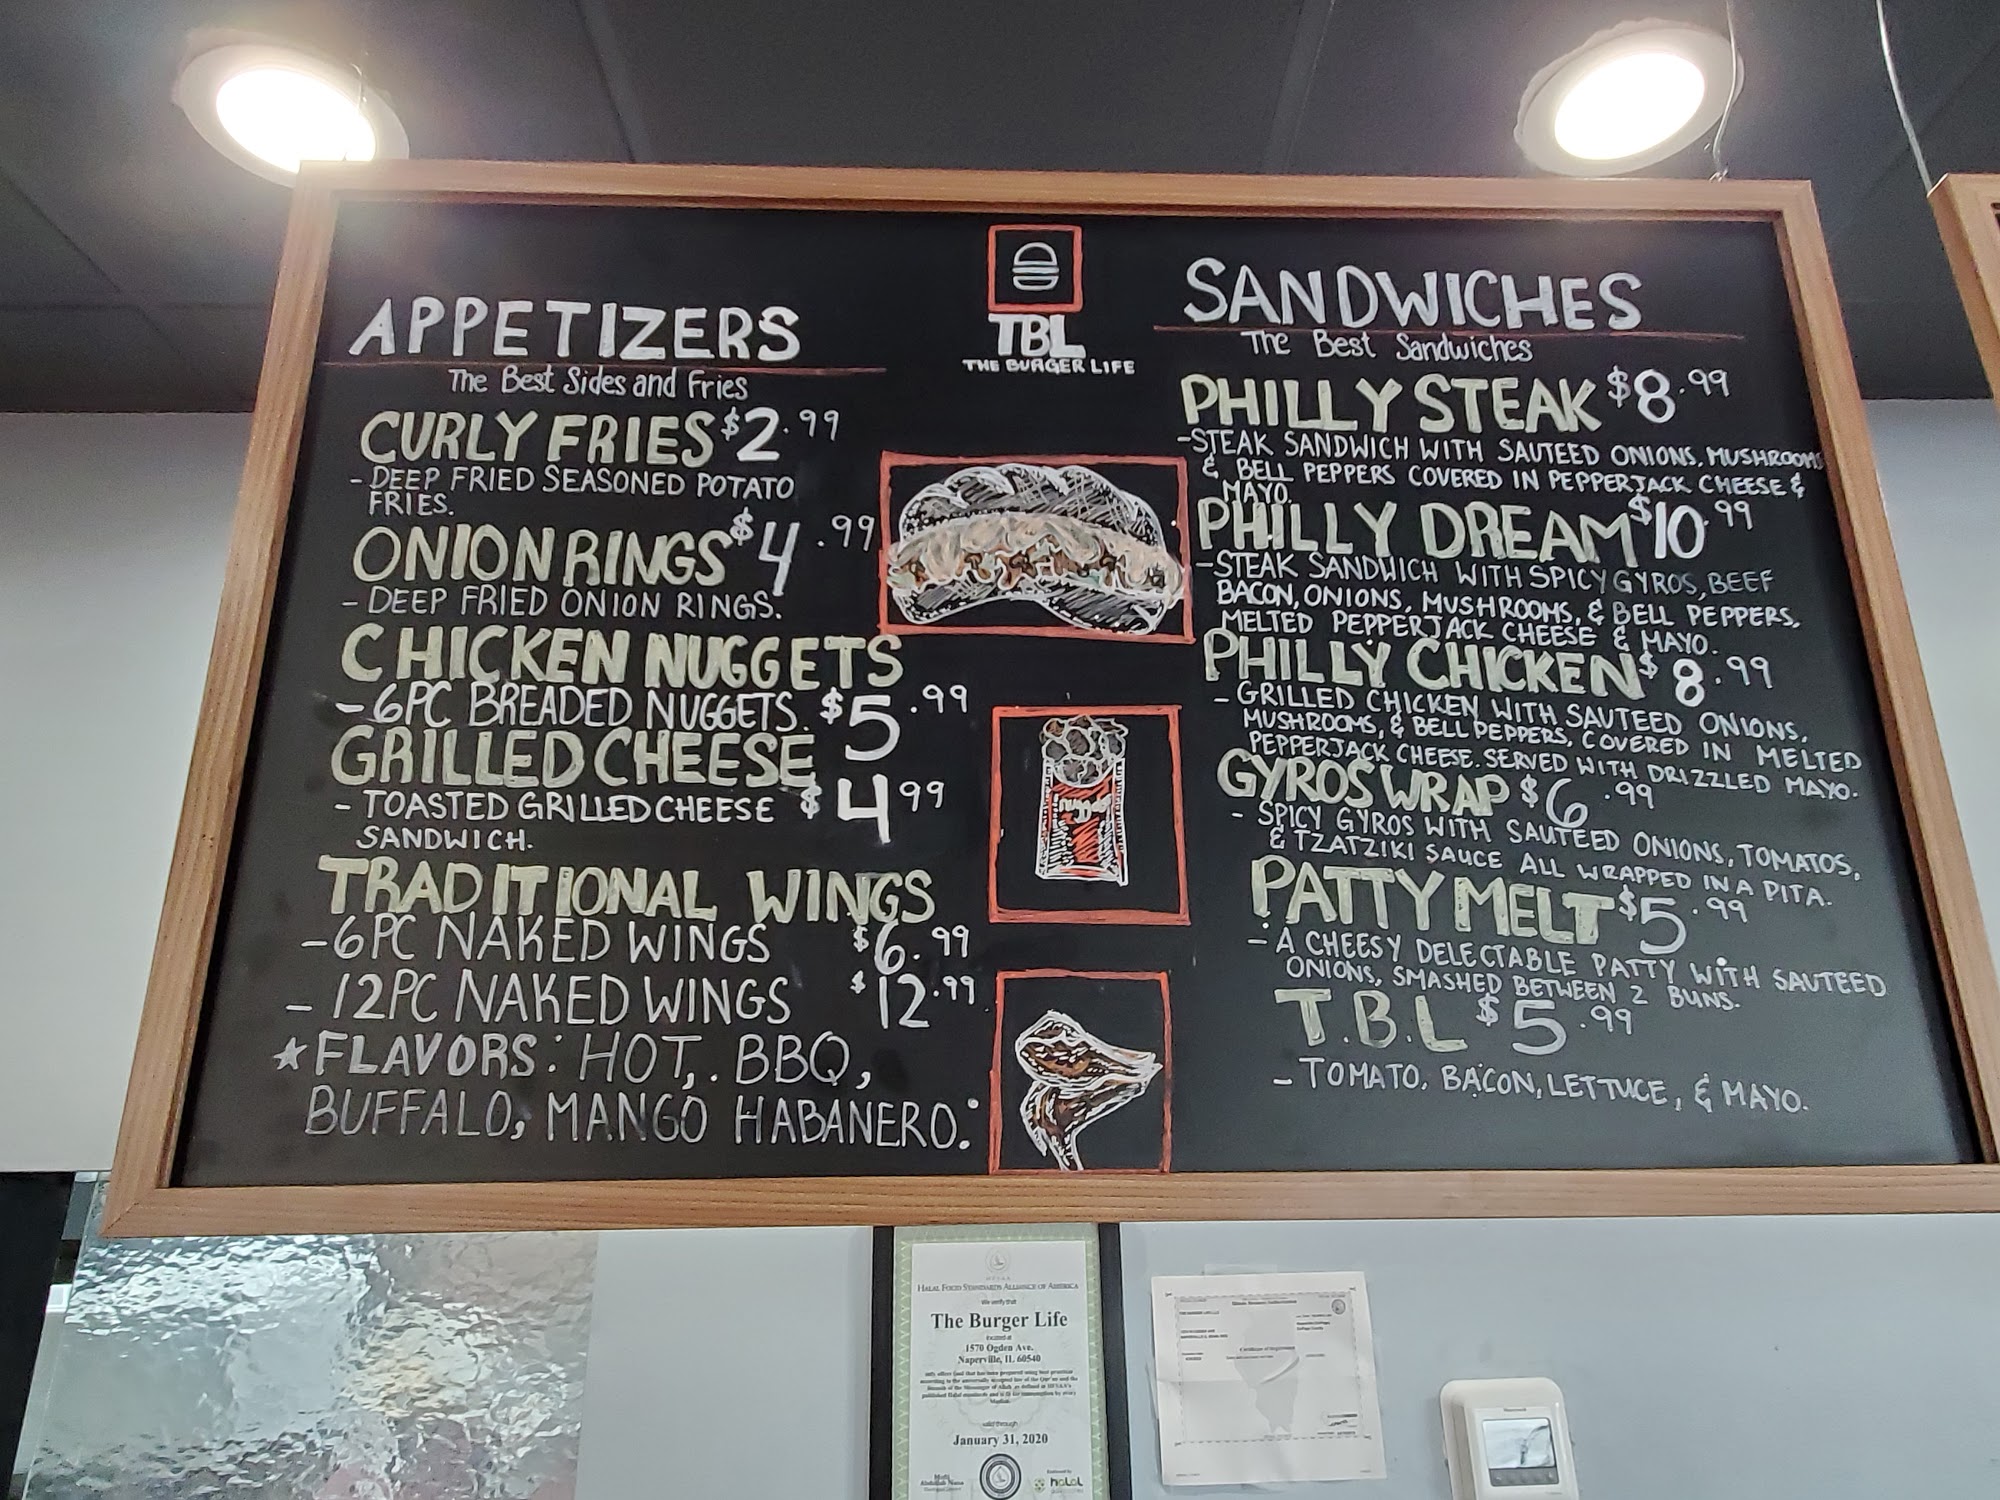 TBL
THE BURGER LIFE
APPETIZERS
The Best Sides and Fries
CURLY FRIES $2.99
- DEEP FRIED SEASONED POTATO
FRIES.
ONION RINGS $4.99
- DEEP FRIED ONION RINGS.
CHICKEN NUGGETS
- 6PC BREADED NUGGETS. $5.99
GRILLED CHEESE
- TOASTED GRILLED CHEESE $4.99
SANDWICH.
TRADITIONAL WINGS
- 6PC NAKED WINGS $6.99
- 12PC NAKED WINGS $12.99
★FLAVORS: HOT, BBQ,
BUFFALO, MANGO HABANERO.
SANDWICHES
The Best Sandwiches
PHILLY STEAK $8.99
-STEAK SANDWICH WITH SAUTEED ONIONS, MUSHROOMS
& BELL PEPPERS COVERED IN PEPPERJACK CHEESE &
MAYO.
PHILLY DREAM $10.99
-STEAK SANDWICH WITH SPICY GYROS, BEEF
BACON, ONIONS, MUSHROOMS, & BELL PEPPERS,
MELTED PEPPERJACK CHEESE & MAYO.
PHILLY CHICKEN $8.99
- GRILLED CHICKEN WITH SAUTEED ONIONS,
MUSHROOMS, & BELL PEPPERS, COVERED IN MELTED
PEPPERJACK CHEESE. SERVED WITH DRIZZLED MAYO.
GYROS WRAP $6.99
- SPICY GYROS WITH SAUTEED ONIONS, TOMATOS,
& TZATZIKI SAUCE ALL WRAPPED IN A PITA.
PATTY MELT $5.99
- A CHEESY DELECTABLE PATTY WITH SAUTEED
ONIONS, SMASHED BETWEEN 2 BUNS.
T.B.L $5.99
- TOMATO, BACON, LETTUCE, & MAYO.
HALAL FOOD STANDARDS ALLIANCE OF AMERICA
We verify that
The Burger Life
located at
1570 Ogden Ave.
Naperville, IL 60540
valid through
January 31, 2020
halal
Honeywell